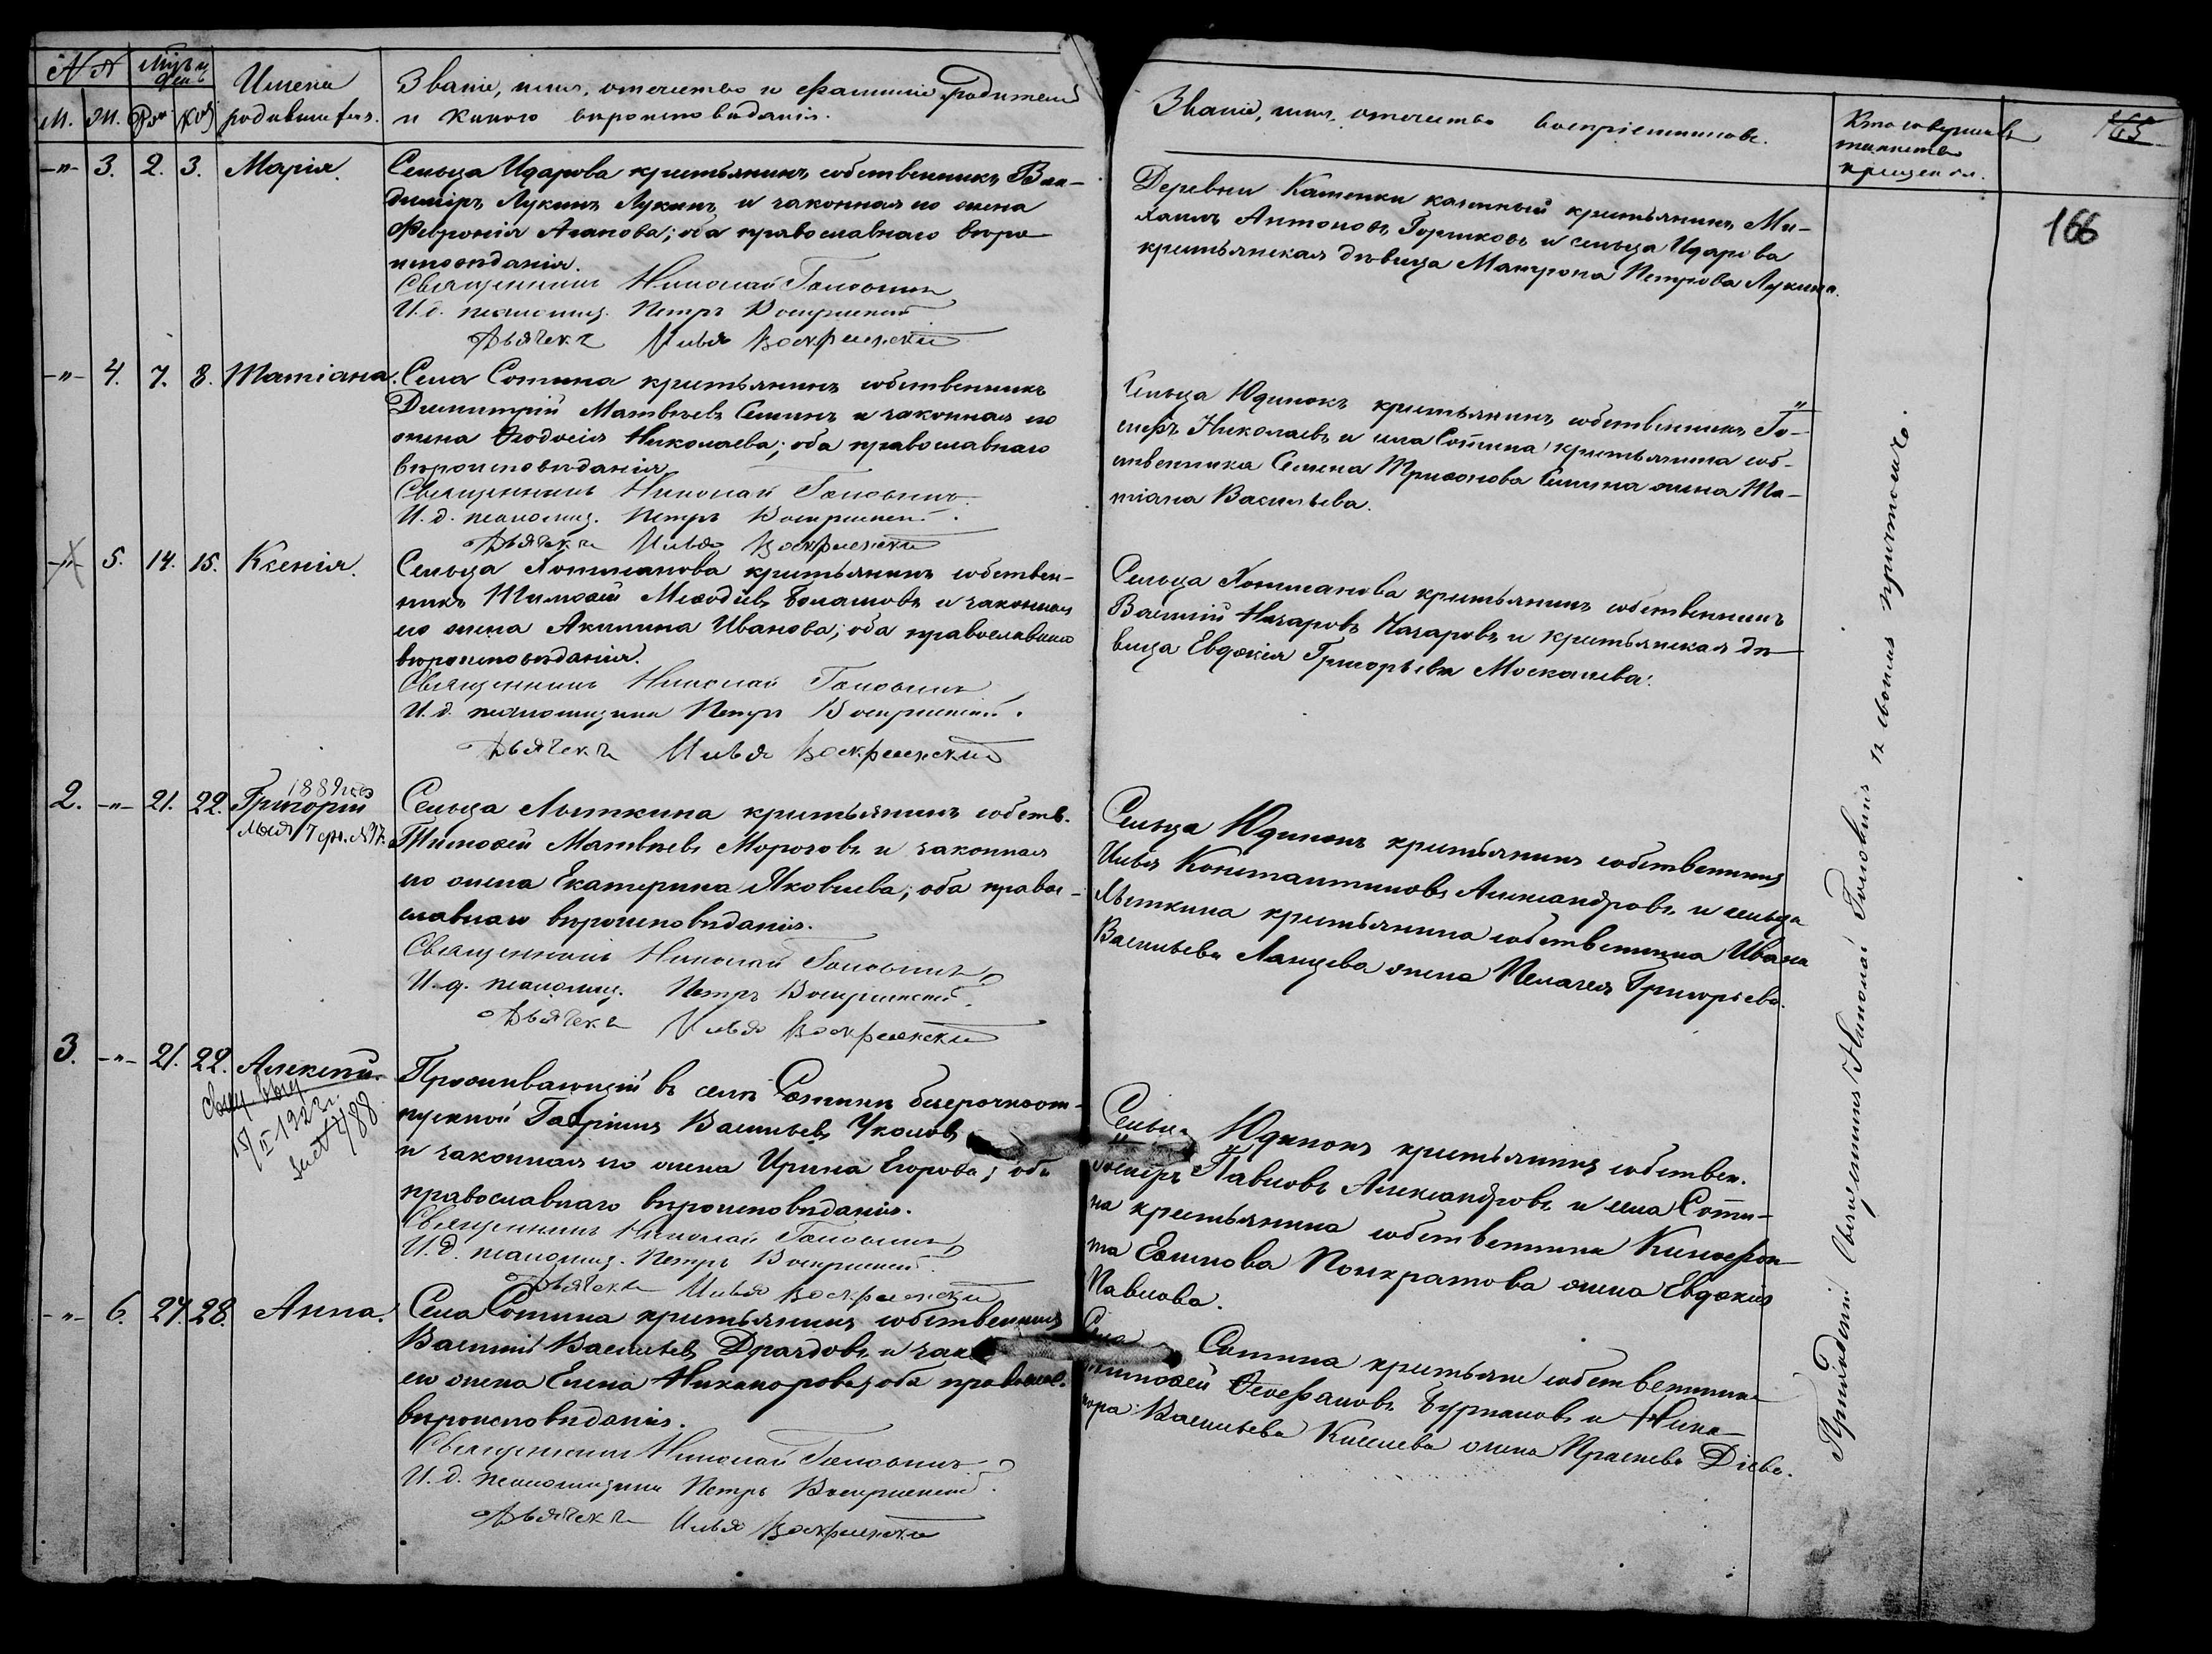 № №
Мѣс. и день
Имена родившихся.
Званіе, имя, отечество и фамилія родителей
и какого вѣроисповѣданія.
М. Ж. Рож. Кр.
-„- 3. 2. 3. Марія.
Сельца Идарова крестьянинъ собственникъ Вла-
диміръ Лукинъ Лукинъ и законная его жена
Февронія Агапова; оба православнаго вѣро-
исповѣданія.
Священникъ Николай Головинъ
И. д. псаломщ. Петръ Воскресенскій
Дьячекъ Илья Воскресенскій
-„- 4. 7. 8. Татіана.
Села Сотина крестьянинъ собственникъ
Димитрій Матвѣевъ Семинъ и законная его
жена Ѳеодосія Николаева; оба православнаго
вѣроисповѣданія.
Священникъ Николай Головинъ
И. д. псаломщ. Петръ Воскресенскій.
Дьячекъ Илья Воскресенскій
-„- 5. 14. 15. Ксенія.
Сельца Хотиманова крестьянинъ собствен-
никъ Тимоѳей Меѳодіевъ и законная
его жена Акилина Иванова; оба православнаго
вѣроисповѣданія.
Священникъ Николай Головинъ
И. д. псаломщика Петръ Воскресенскій.
Дьячекъ Илья Воскресенскій
2. -„- 21. 22. Григорій
1889 года
мая 7 дня №
Сельца Лыткина крестьянинъ собств.
Тимоѳей Матвѣевъ Морозовъ и законная
его жена Екатерина Яковлева; оба право-
славнаго вѣроисповѣданія.
Священникъ Николай Головинъ
И. д. псаломщ. Петръ Воскресенскій.
Дьячекъ Илья Воскресенскій
3. -„- 21. 22. Алексѣй.
выд
15/II 1923 г.
188
Проживающій въ селѣ Сотинѣ безсрочноот-
пускной Гавріилъ Васильевъ Уколовъ
и законная его жена Ирина Егорова; оба
православнаго вѣроисповѣданія.
Священникъ Николай Головинъ
И. д. псаломщ. Петръ Воскресенскій.
Дьячекъ Илья Воскресенскій
-„- 6. 27. 28. Анна.
Села Сотина крестьянинъ собственникъ
Василій Васильевъ Дроздовъ и зак
его жена Елена Никанорова; оба православ.
вѣроисповѣданія.
Священникъ Николай Головинъ
И. д. псаломщика Петръ Воскресенскій.
Дьячекъ Илья Воскресенскій
Званіе, имя, отечество воспріемниковъ.
Кто совершалъ
таинство
крещенія.
165
166
Деревни Каменки казенный крестьянинъ Ми-
хаилъ Антоновъ Горшковъ и сельца Идарова
крестьянская дѣвица Матрона Петрова Лукина.
Сельца Юдинокъ крестьянинъ собственникъ Іо-
сифъ Николаевъ и села Сотина крестьянина соб-
ственника Семена Трифонова Семина жена Та-
тіана Васильева.
Сельца Хотиманова крестьянинъ собственникъ
Василій Назаровъ Назаровъ и крестьянская дѣ-
вица Евдокія Григорьева Москалева.
Сельца Юдинокъ крестьянинъ собственникъ
Илья Константиновъ Александровъ и сельца
Лыткина крестьянина собственника Ивана
Васильева Ланцева жена Пелагея Григорьева.
Сельца Юдинокъ крестьянинъ собствен.
Іосифъ Павловъ Александровъ и села Соти-
на крестьянина собственника Ксенофон-
та Панкратова жена Евдокія
Павлова.
Села Сотина крестьяне собственники
Тимоѳей Ѳеофановъ и Ника-
нора Васильева Киселева жена
Приходскій Священникъ Николай Головинъ съ своимъ причтомъ.